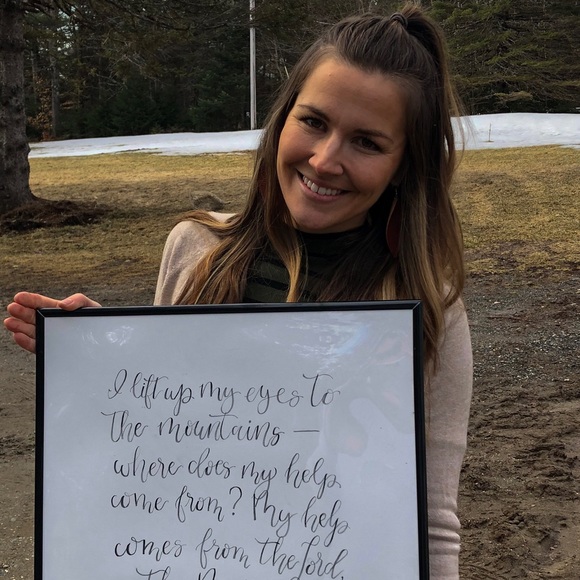 I lift up my eyes to
the mountains —
where does my help
come from? My help
comes from the Lord,
the